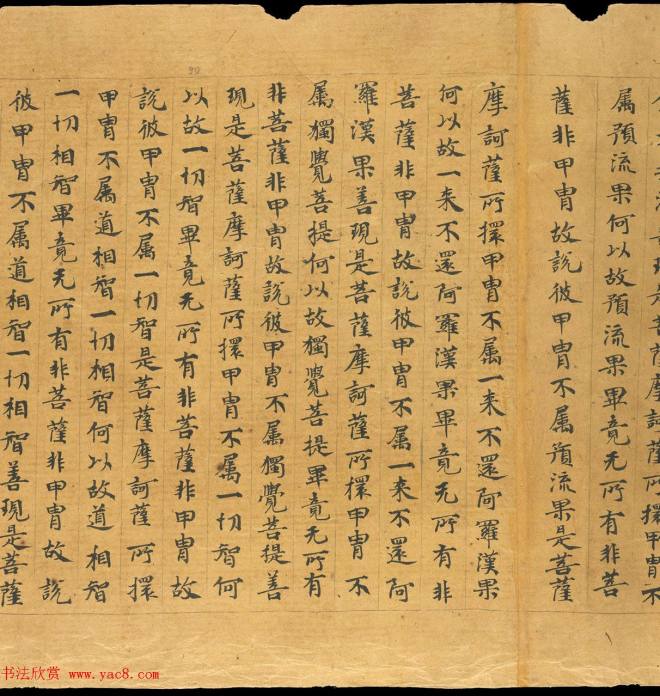 現是菩薩摩訶薩所擐甲冑不
属預流果何以故預流果畢竟无所有非菩
薩非甲冑故說彼甲冑不属預流果是菩薩
摩訶薩所擐甲冑不属一来不還阿羅漢果
何以故一来不還阿羅漢果畢竟无所有非
菩薩非甲冑故說彼甲冑不属一来不還阿
羅漢果善現是菩薩摩訶薩所擐甲冑不
属獨覺菩提何以故獨覺菩提畢竟无所有
非菩薩非甲冑故說彼甲冑不属獨覺菩提善
現是菩薩摩訶薩所擐甲冑不属一切智何
以故一切智畢竟无所有非菩薩非甲冑故
說彼甲冑不属一切智是菩薩摩訶薩所擐
甲冑不属道相智一切相智何以故道相智
一切相智畢竟无所有非菩薩非甲冑故說
彼甲冑不属道相智一切相智善現是菩薩
书法欣赏 www.yac8.com